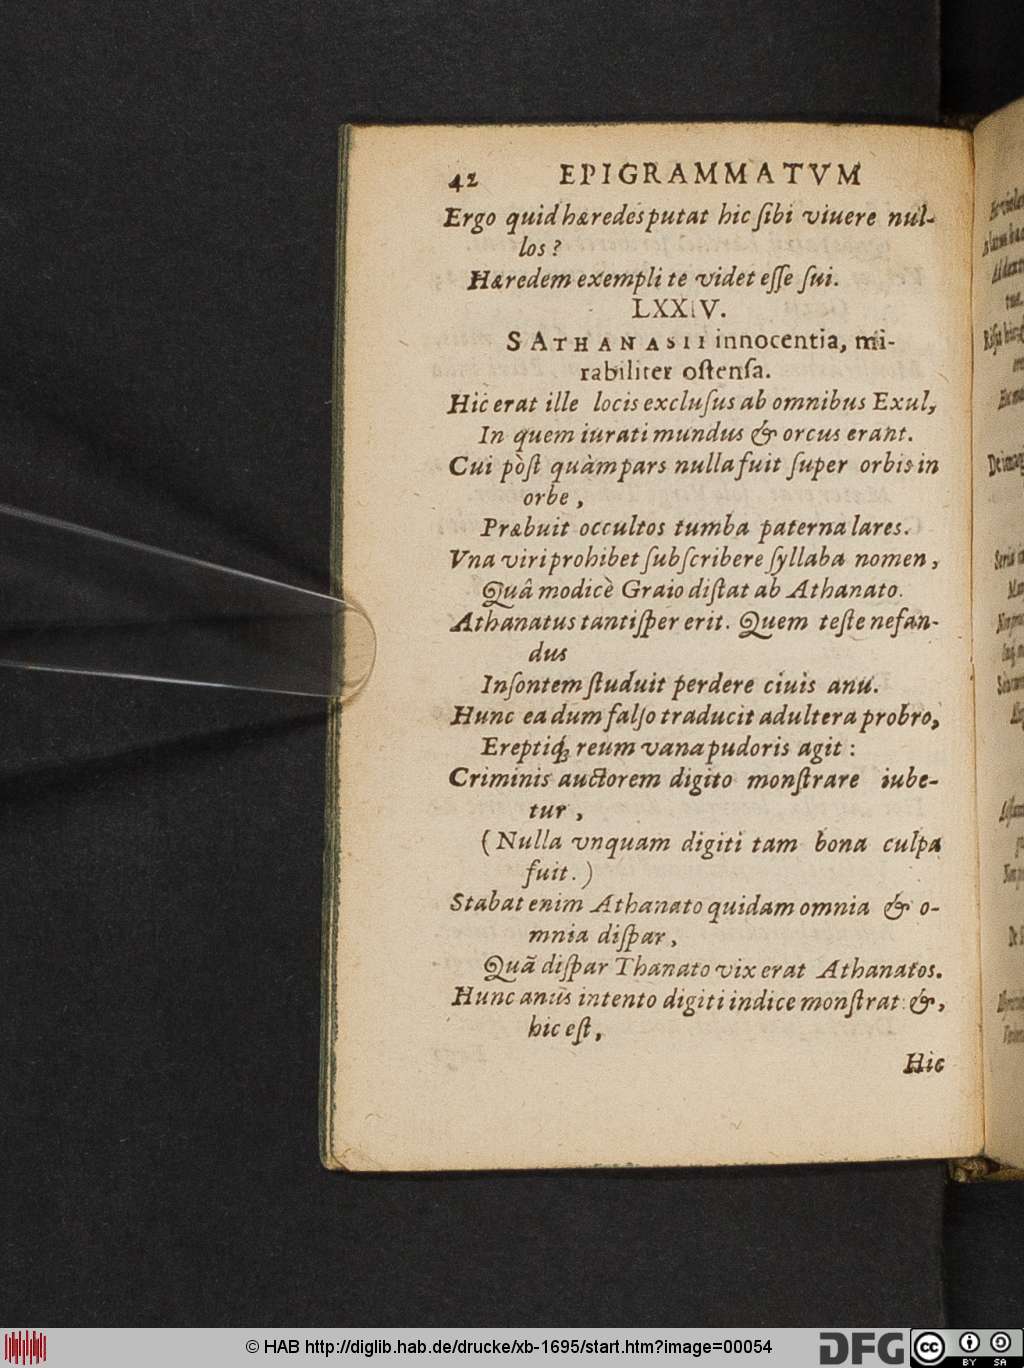 42 EPIGRAMMATVM
Ergo quid hæredes putat hic ſibi viuere nul-
los?
Hæredem exempli te videt eſſe ſui.
LXXIV.
S ATHANASII innocentia, mi-
rabiliter oſtenſa.
Hic erat ille locis excluſus ab omnibus Exul,
In quem iurati mundus & orcus erant.
Cui pòſt quàm pars nulla fuit ſuper orbis in
orbe,
Præbuit occultos tumba paterna lares.
Vna viri prohibet ſubſcribere ſyllaba nomen,
Quâ modicè Graio diſtat ab Athanato.
Athanatus tantiſper erit. Quem teſte nefan-
dus
Inſontem ſtuduit perdere ciuis anu.
Hunc ea dum falſo traducit adultera probro,
Ereptiq́ꝫ reum vana pudoris agit:
Criminis auctorem digito monſtrare iube-
tur,
(Nulla vnquam digiti tam bona culpa
fuit.)
Stabat enim Athanato quidam omnia & o-
mnia diſpar,
Quã diſpar Thanato vix erat Athanatos.
Hunc anus intento digiti indice monſtrat: &,
hic eſt,
Hic
© HAB http://diglib.hab.de/drucke/xb-1695/start.htm?image=00054
DFG
cc BY SA